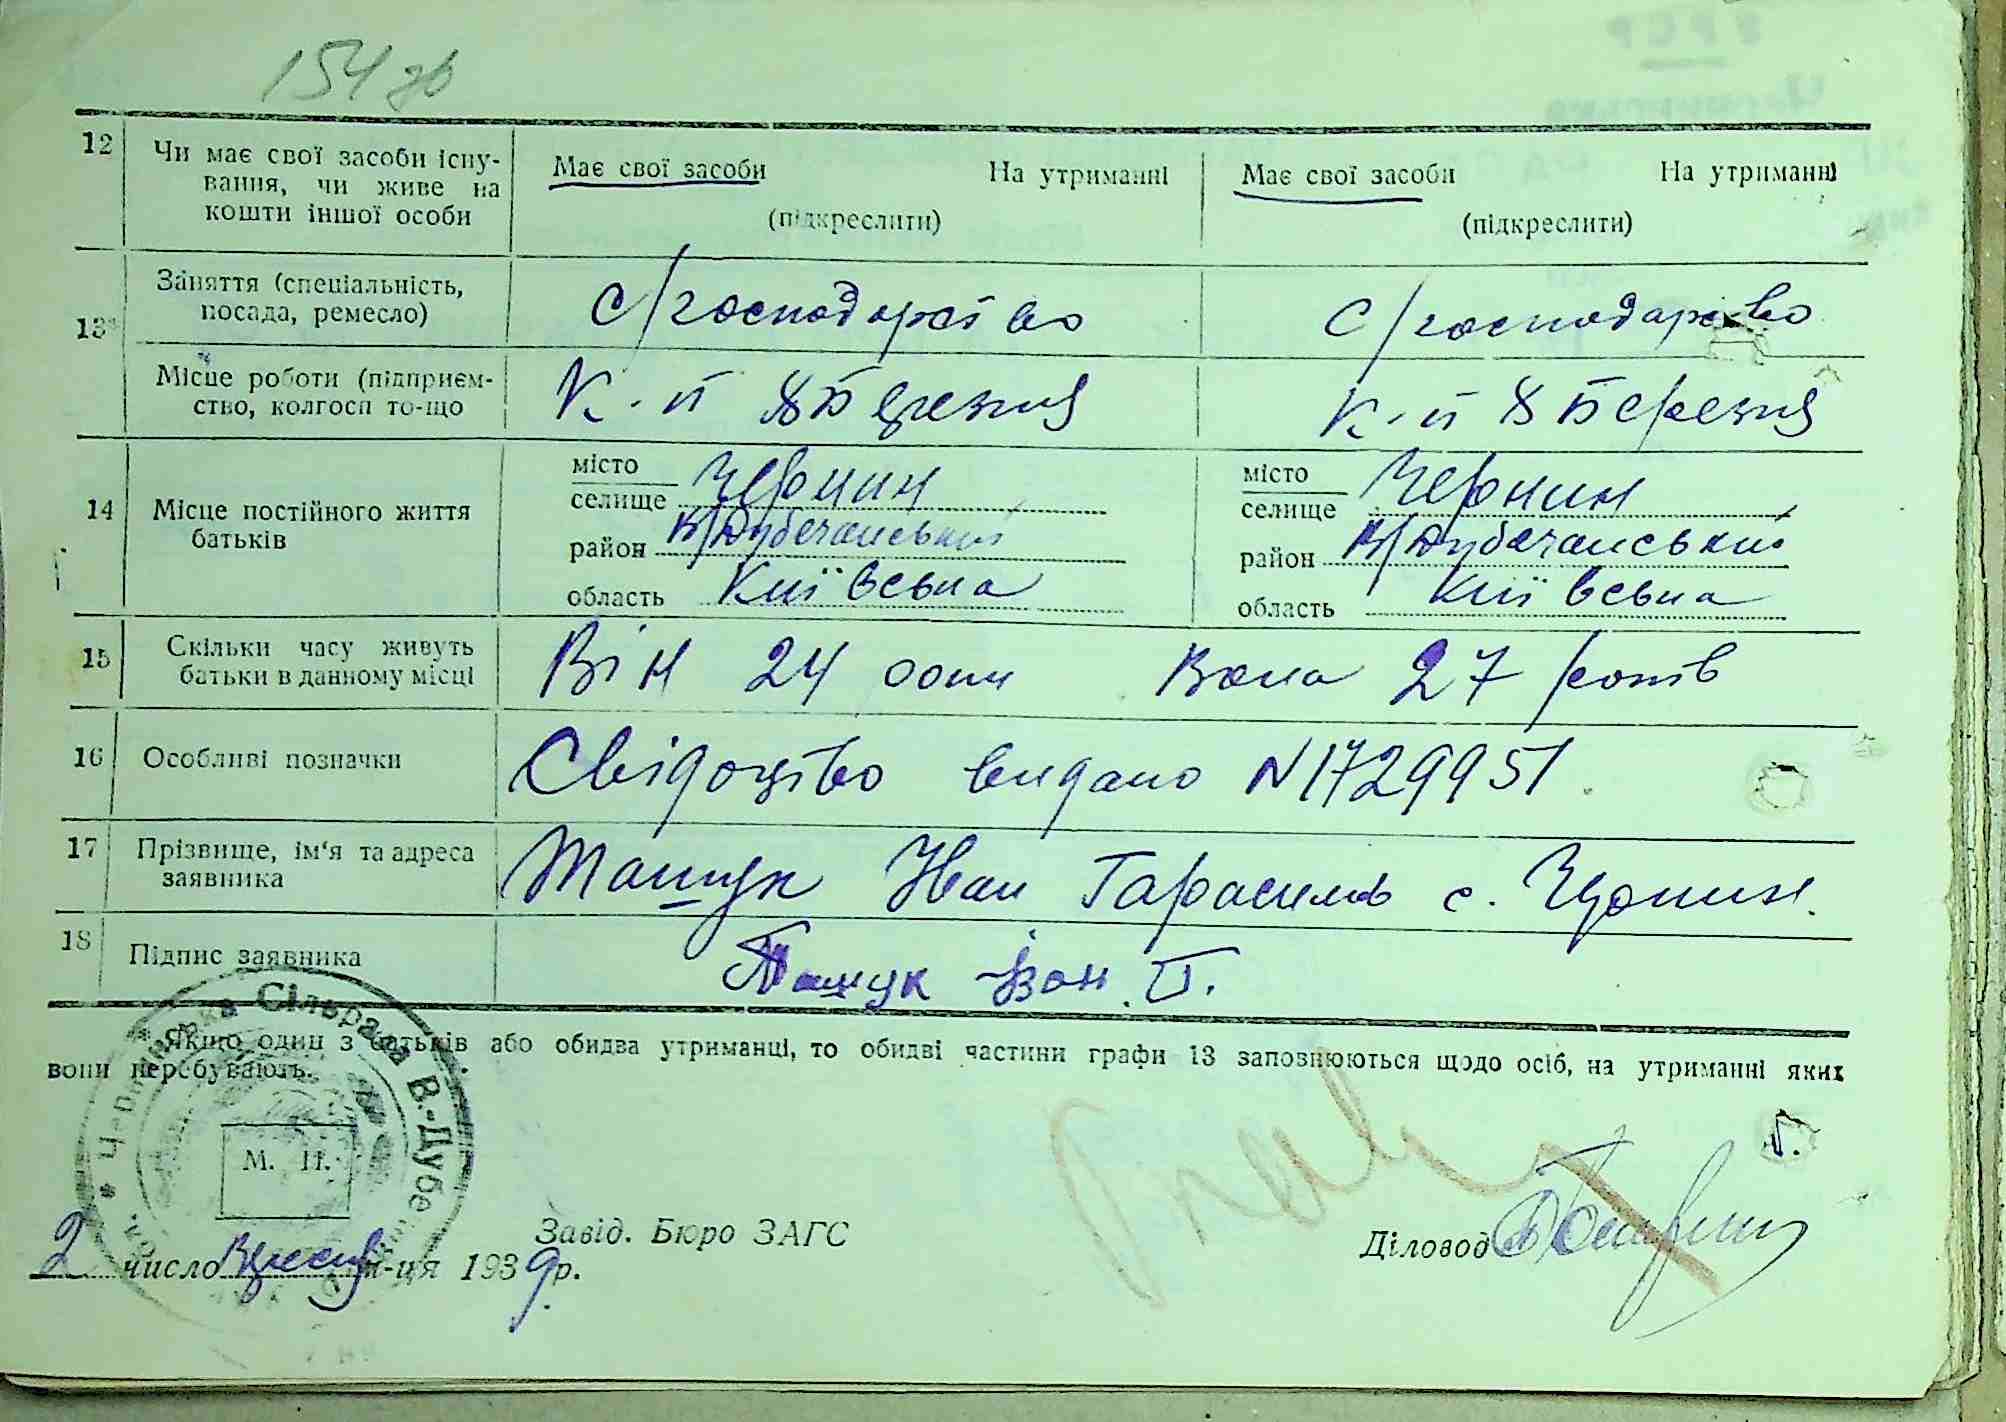 154 зв
12 Чи має свої засоби існу-
вання, чи живе на
кошти іншої особи
Має свої засоби На утриманні
(підкреслити)
Має свої засоби На утриманні
(підкреслити)
13* Заняття (спеціальність,
посада, ремесло)
С/господарство
С/господарство
Місце роботи (підприєм-
ство, колгосп то-що
К-п 8 Березня
К-п 8 Березня
14 Місце постійного життя
батьків
місто
селище Чернин
район В/Дубечанський
область Київська
місто
селище Чернин
район В/Дубечанський
область Київська
15 Скільки часу живуть
батьки в данному місці
Він 24 роки Вона 27 років
16 Особливі позначки
Свідоцтво видано N1729951.
17 Прізвище, ім'я та адреса
заявника
Тащук Иван Тарасимов с. Чернин.
18 Підпис заявника
Тащук Іван. Т.
* Якщо один з батьків або обидва утриманці, то обидві частини графи 13 заповнюються щодо осіб, на утриманні яких
вони перебувають.
* Чернинська Сільрада В.-Дубе
М. П.
Завід. Бюро ЗАГС
Діловод
2 число Вересня м-ця 1939 р.